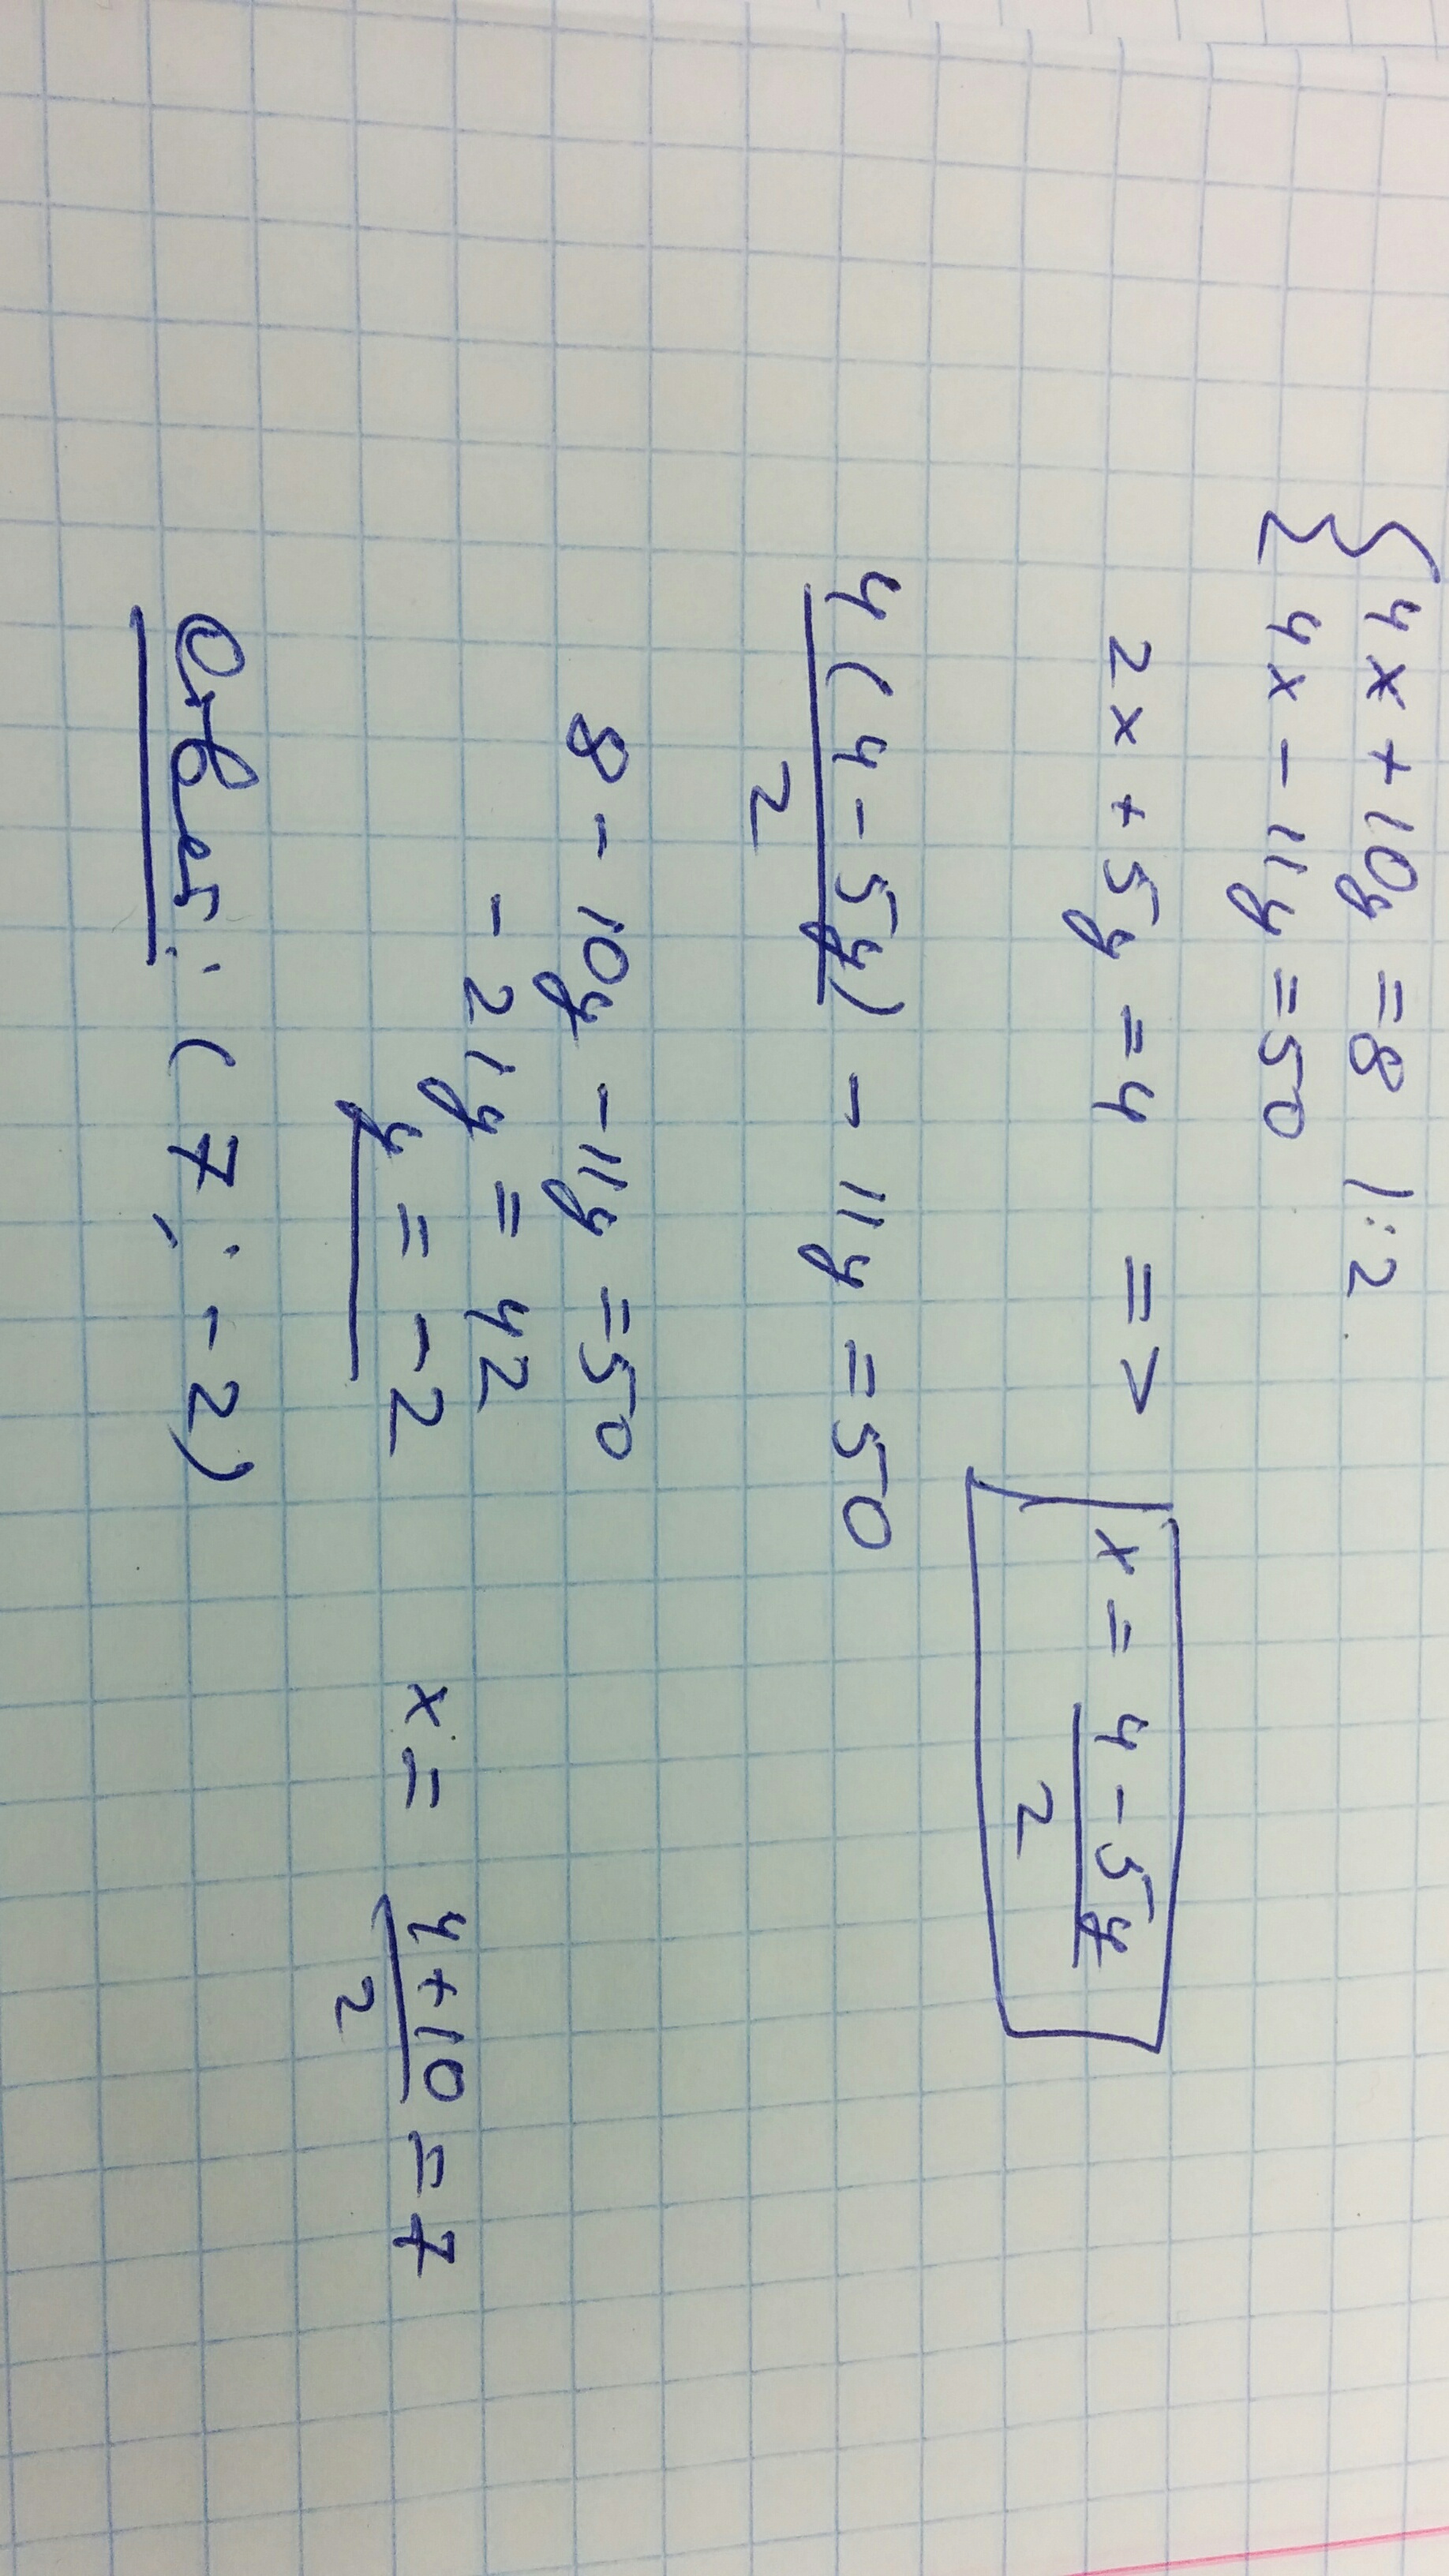 { 4x + 10y = 8 | : 2
{ 4x - 11y = 50
2x + 5y = 4 => x = (4 - 5y)/2
4(4 - 5y)/2 - 11y = 50
8 - 10y - 11y = 50
- 21y = 42
y = -2 x = (4 + 10)/2 = 7
Ответ: (7; -2)